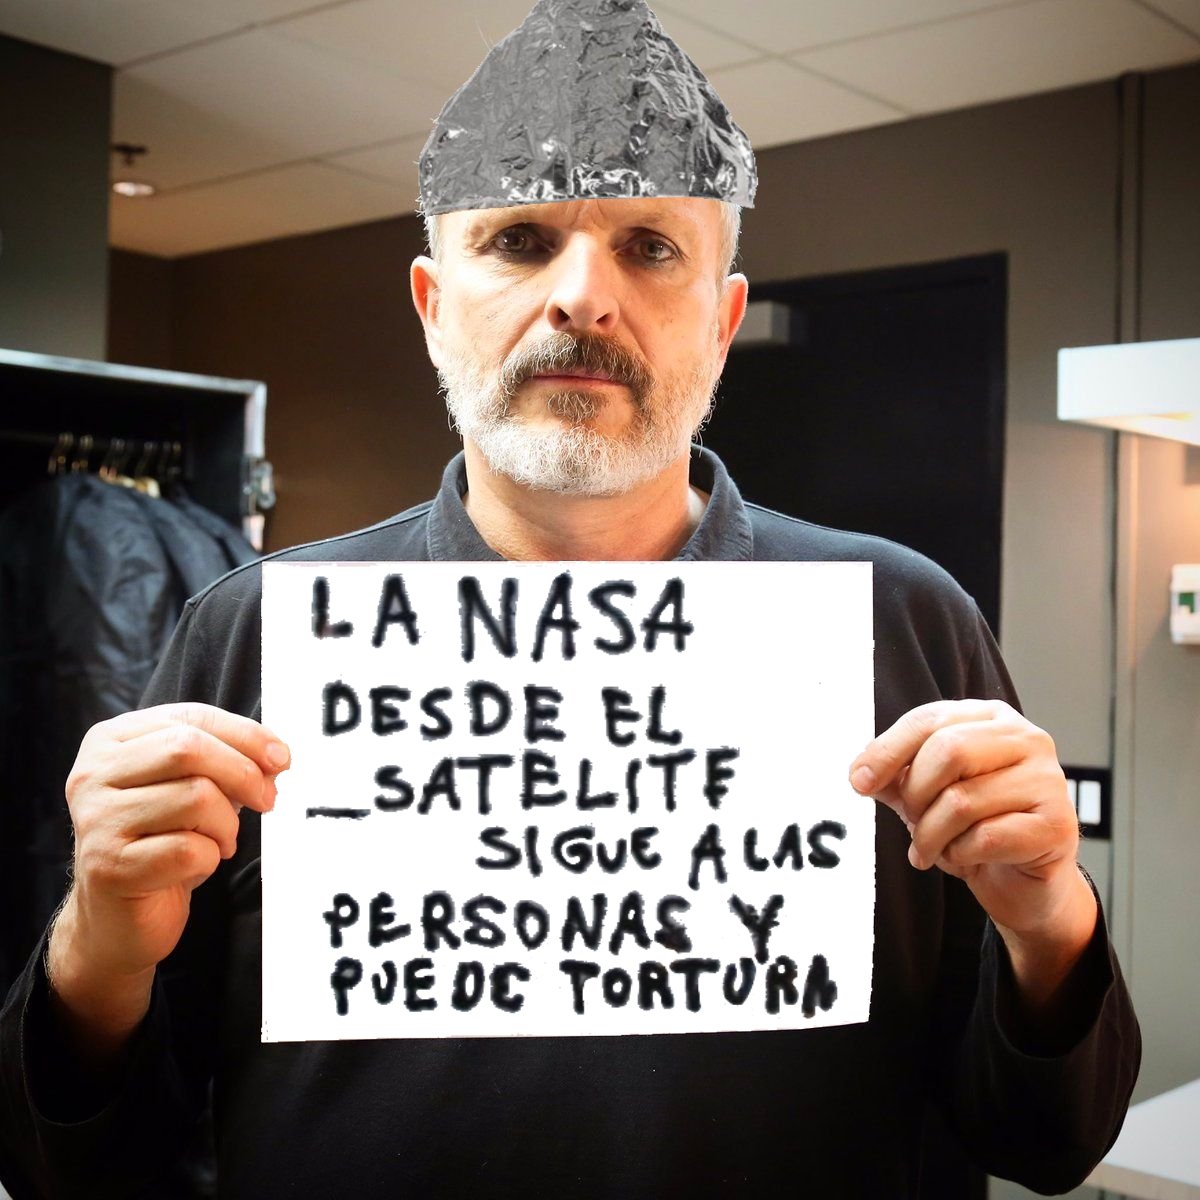 LA NASA
DESDE EL
_SATELITE
SIGUE A LAS
PERSONAS Y
PUEDE TORTURA